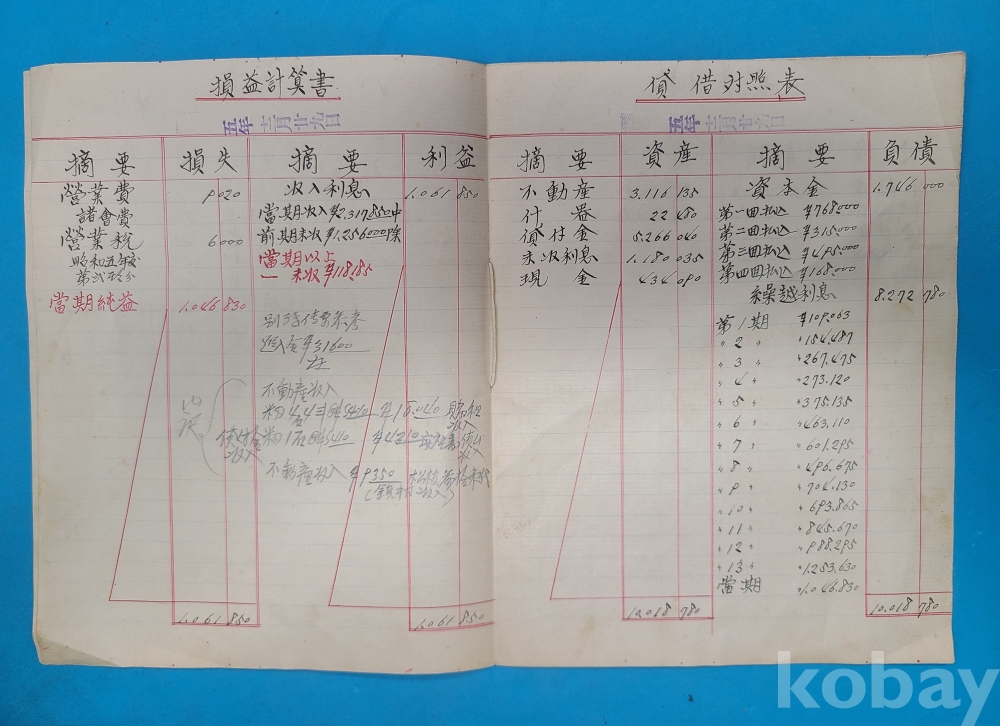 損益計算書
五年十二月廿九日
摘要 損失 摘要 利益
營業費 9020 収入利息 1.061 850
諸會費 當期収入¥2.317.850中
營業税 6000 前期未収¥1.256000除
昭和五年度 當期以上
未収¥118.85
當期純益 1.046 830
不動産収入
不動産収入 ¥9350
1.061 850 1.061 850
貸借対照表
五年十二月廿九日
摘要 資産 摘要 負債
不動産 3.116 135 資本金 1.746 000
什器 22 480 第一回払込 ¥768000
貸付金 5.266 040 第二回払込 ¥315000
未収利息 1.180 035 第三回払込 ¥495000
現金 434 090 第四回払込 ¥168000
繰越利息 8.272 780
第1期 ¥109.063
〃2〃 〃154.487
〃3〃 〃267.475
〃4〃 〃273.120
〃5〃 〃375.135
〃6〃 〃463.110
〃7〃 〃601.295
〃8〃 〃496.675
〃9〃 〃704.130
〃10〃 〃693.865
〃11〃 〃845.670
〃12〃 〃988.295
〃13〃 〃1.253.630
當期 〃1.046.830
10.018 780 10.018 780
kobay